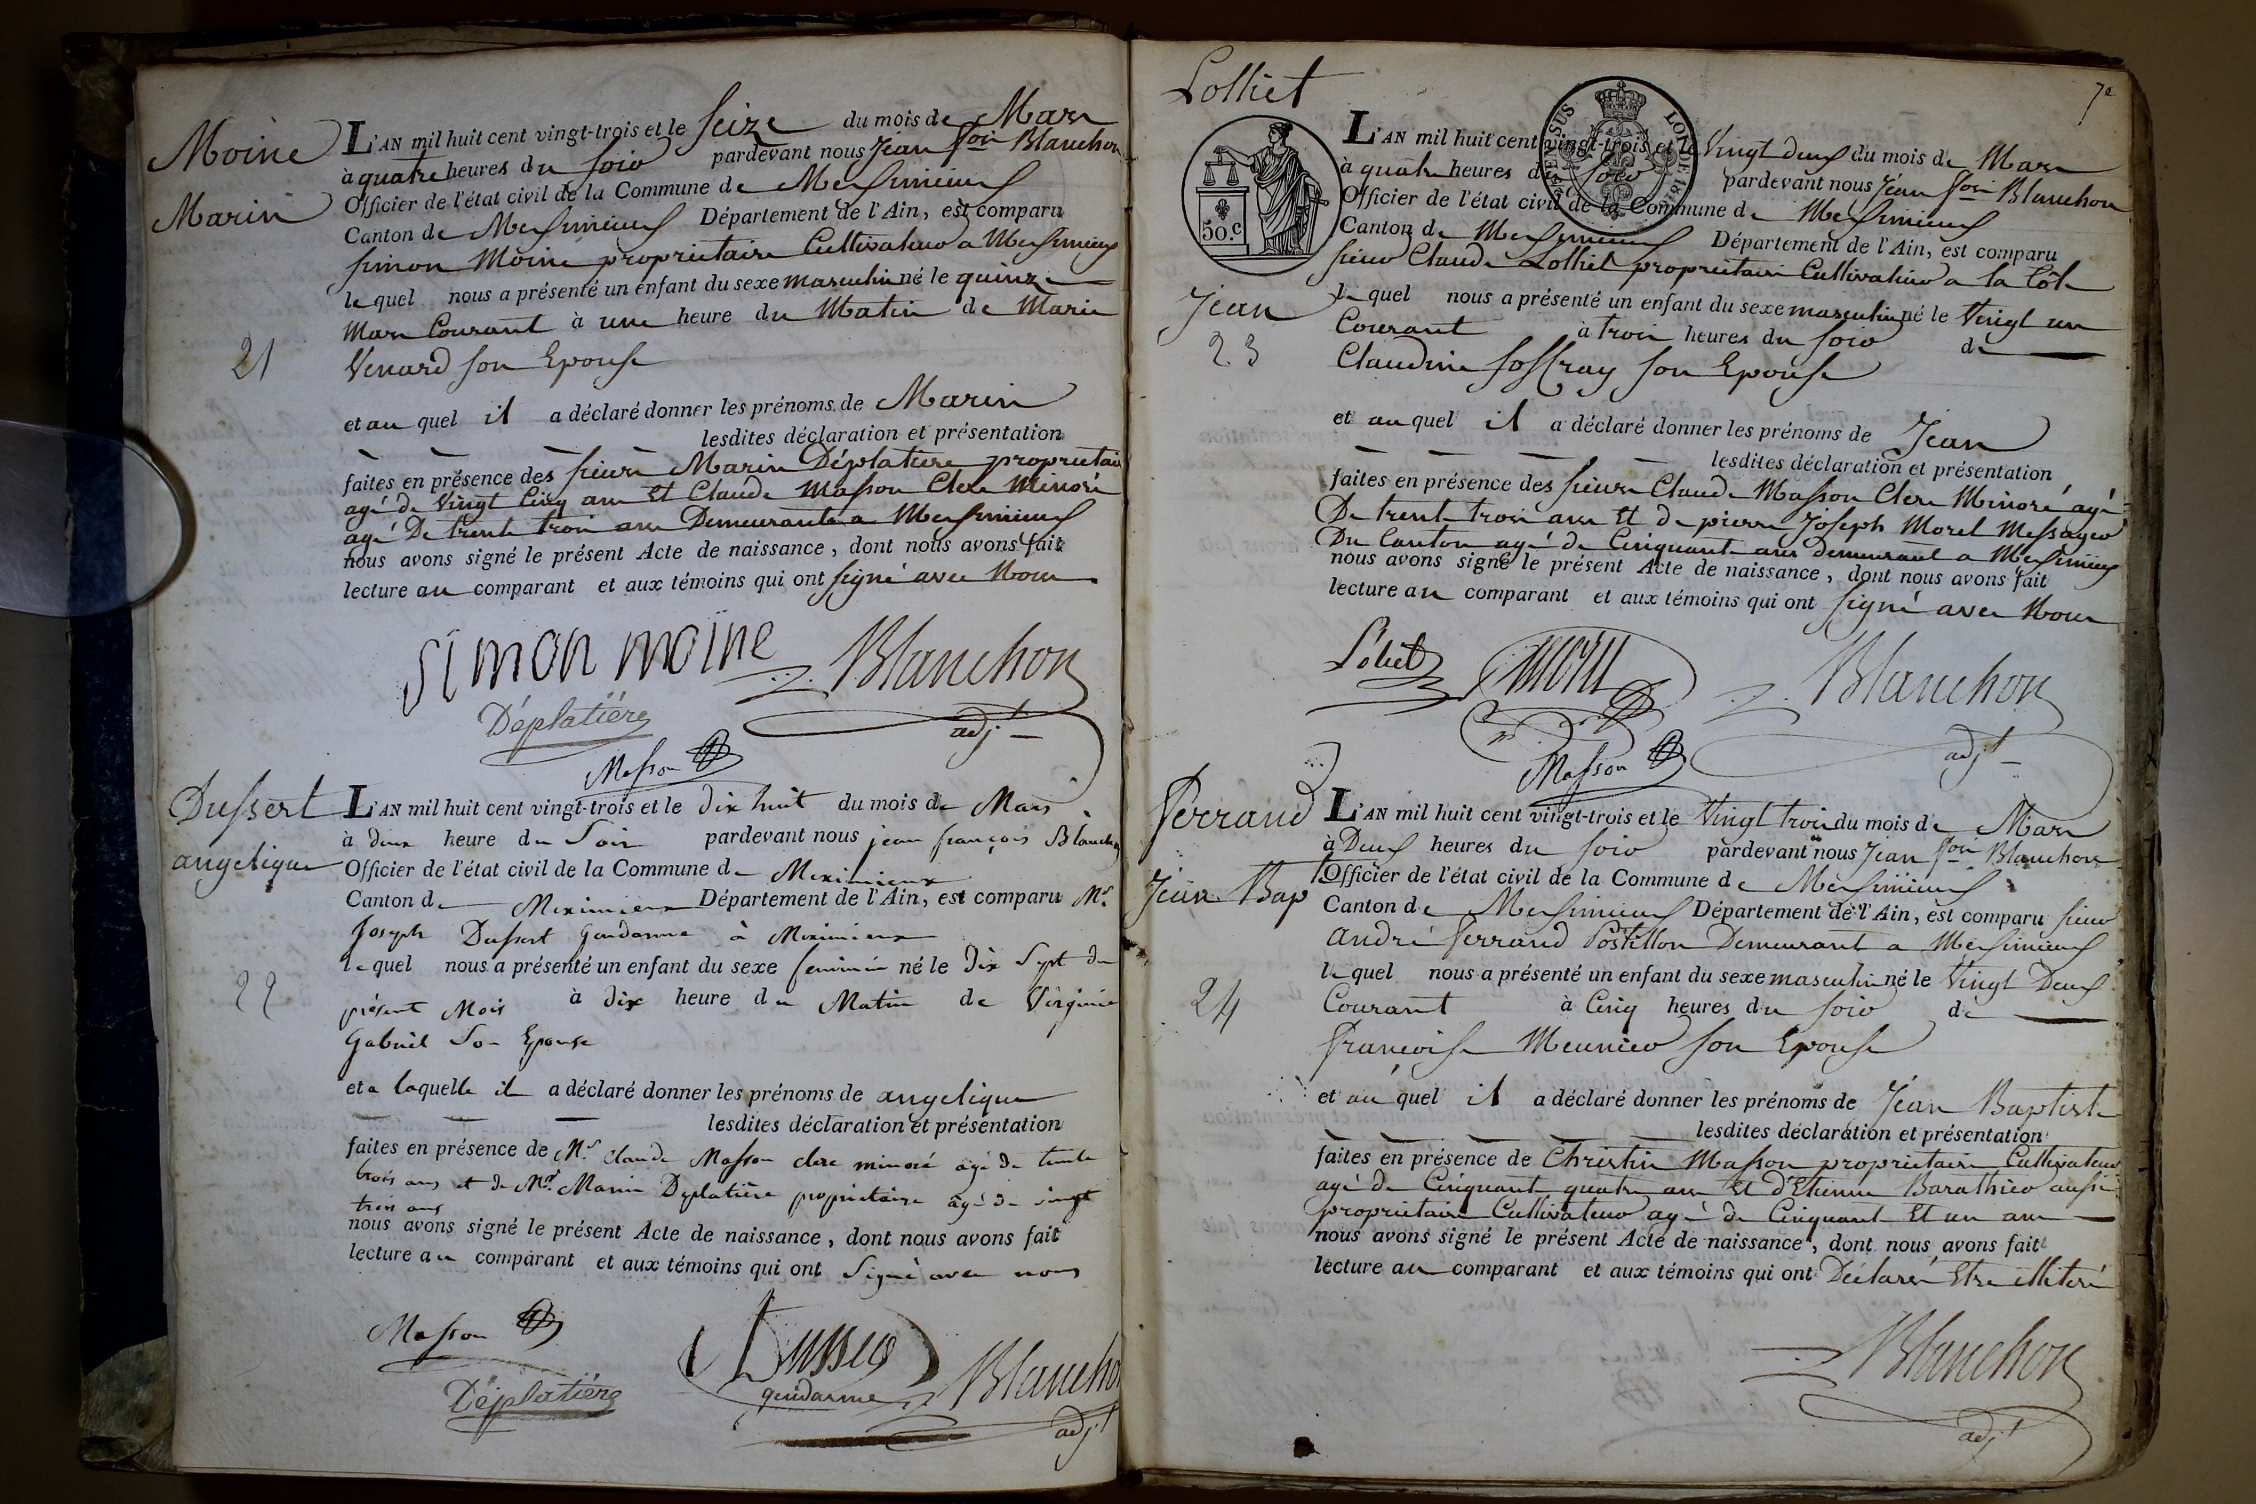 Moine
Marin
21
L'AN mil huit cent vingt-trois et le seize du mois de Mars
à quatre heures du soir pardevant nous Jean fois Blanchon
Officier de l'état civil de la Commune de Meximieux
Canton de Meximieux Département de l'Ain, est comparu
simon Moine proprietaire Cultivateur a Meximieux
lequel nous a présenté un enfant du sexe masculin né le quinze
Mars Courant à une heure du Matin de Marie
Venard son Epouse
et au quel il a déclaré donner les prénoms de Marin
lesdites déclaration et présentation
faites en présence des sieurs Marin Déplatiere proprietaire
agé de Vingt Cinq ans Et Claude Masson Clerc Minoré
agé De trente trois ans Demeurants a Meximieux
nous avons signé le présent Acte de naissance, dont nous avons fait
lecture au comparant et aux témoins qui ont signé avec Nous
simon moine Blanchon
Déplatière adjt
Masson
Dussert
angelique
22
L'AN mil huit cent vingt-trois et le dix huit du mois de Mars
à deux heure du Soir pardevant nous jean françois Blanchon
Officier de l'état civil de la Commune de Meximieux
Canton de Meximieux Département de l'Ain, est comparu Mr
Joseph Dussert Gendarme à Meximieux
lequel nous a présenté un enfant du sexe feminin né le dix Sept du
présent Mois à dix heure du Matin de Virginie
Gabriel Son Epouse
et a laquelle il a déclaré donner les prénoms de angelique
lesdites déclaration et présentation
faites en présence de Mr Claude Masson clerc minoré agé de trente
trois ans et de Mr Marin Deplatière proprietaire agé de vingt
trois ans
nous avons signé le présent Acte de naissance, dont nous avons fait
lecture au comparant et aux témoins qui ont Signé avec nous
Masson
Déplatière
gendarme
Blanchon
adjt
Lolliet
7e
50.c
Jean
23
L'AN mil huit cent vingt-trois et le Vingt deux du mois de Mars
à quatre heures du soir pardevant nous Jean fois Blanchon
Officier de l'état civil de la Commune de Meximieux
Canton de Meximieux Département de l'Ain, est comparu
sieur Claude Lolliet proprietaire Cultivateur a la Côte
lequel nous a présenté un enfant du sexe masculin né le Vingt un
Courant à trois heures du soir de
Claudine son Epouse
et au quel il a déclaré donner les prénoms de Jean
lesdites déclaration et présentation
faites en présence des sieurs Claude Masson Clerc Minoré agé
De trente trois ans Et de pierre Joseph Morel Messager
Du Canton agé de Cinquante ans demeurant a Meximieux
nous avons signé le présent Acte de naissance, dont nous avons fait
lecture au comparant et aux témoins qui ont signé avec Nous
Loliet Blanchon
adjt
Masson
Ferrand
Jean Bapt
24
L'AN mil huit cent vingt-trois et le Vingt trois du mois de Mars
à Deux heures du soir pardevant nous Jean fois Blanchon
Officier de l'état civil de la Commune de Meximieux
Canton de Meximieux Département de l'Ain, est comparu sieur
André ferrand Postillon Demeurant a Meximieux
lequel nous a présenté un enfant du sexe masculin né le Vingt Deux
Courant à Cinq heures du soir de
francoise Meunier son Epouse
et au quel il a déclaré donner les prénoms de Jean Baptiste
lesdites déclaration et présentation
faites en présence de Christin Masson proprietaire Cultivateur
agé de Cinquante quatre ans Et d'Etienne Barathier aussi
proprietaire Cultivateur agé de Cinquante Et un ans
nous avons signé le présent Acte de naissance, dont nous avons fait
lecture au comparant et aux témoins qui ont Déclaré Etre illiteré
Blanchon
adjt